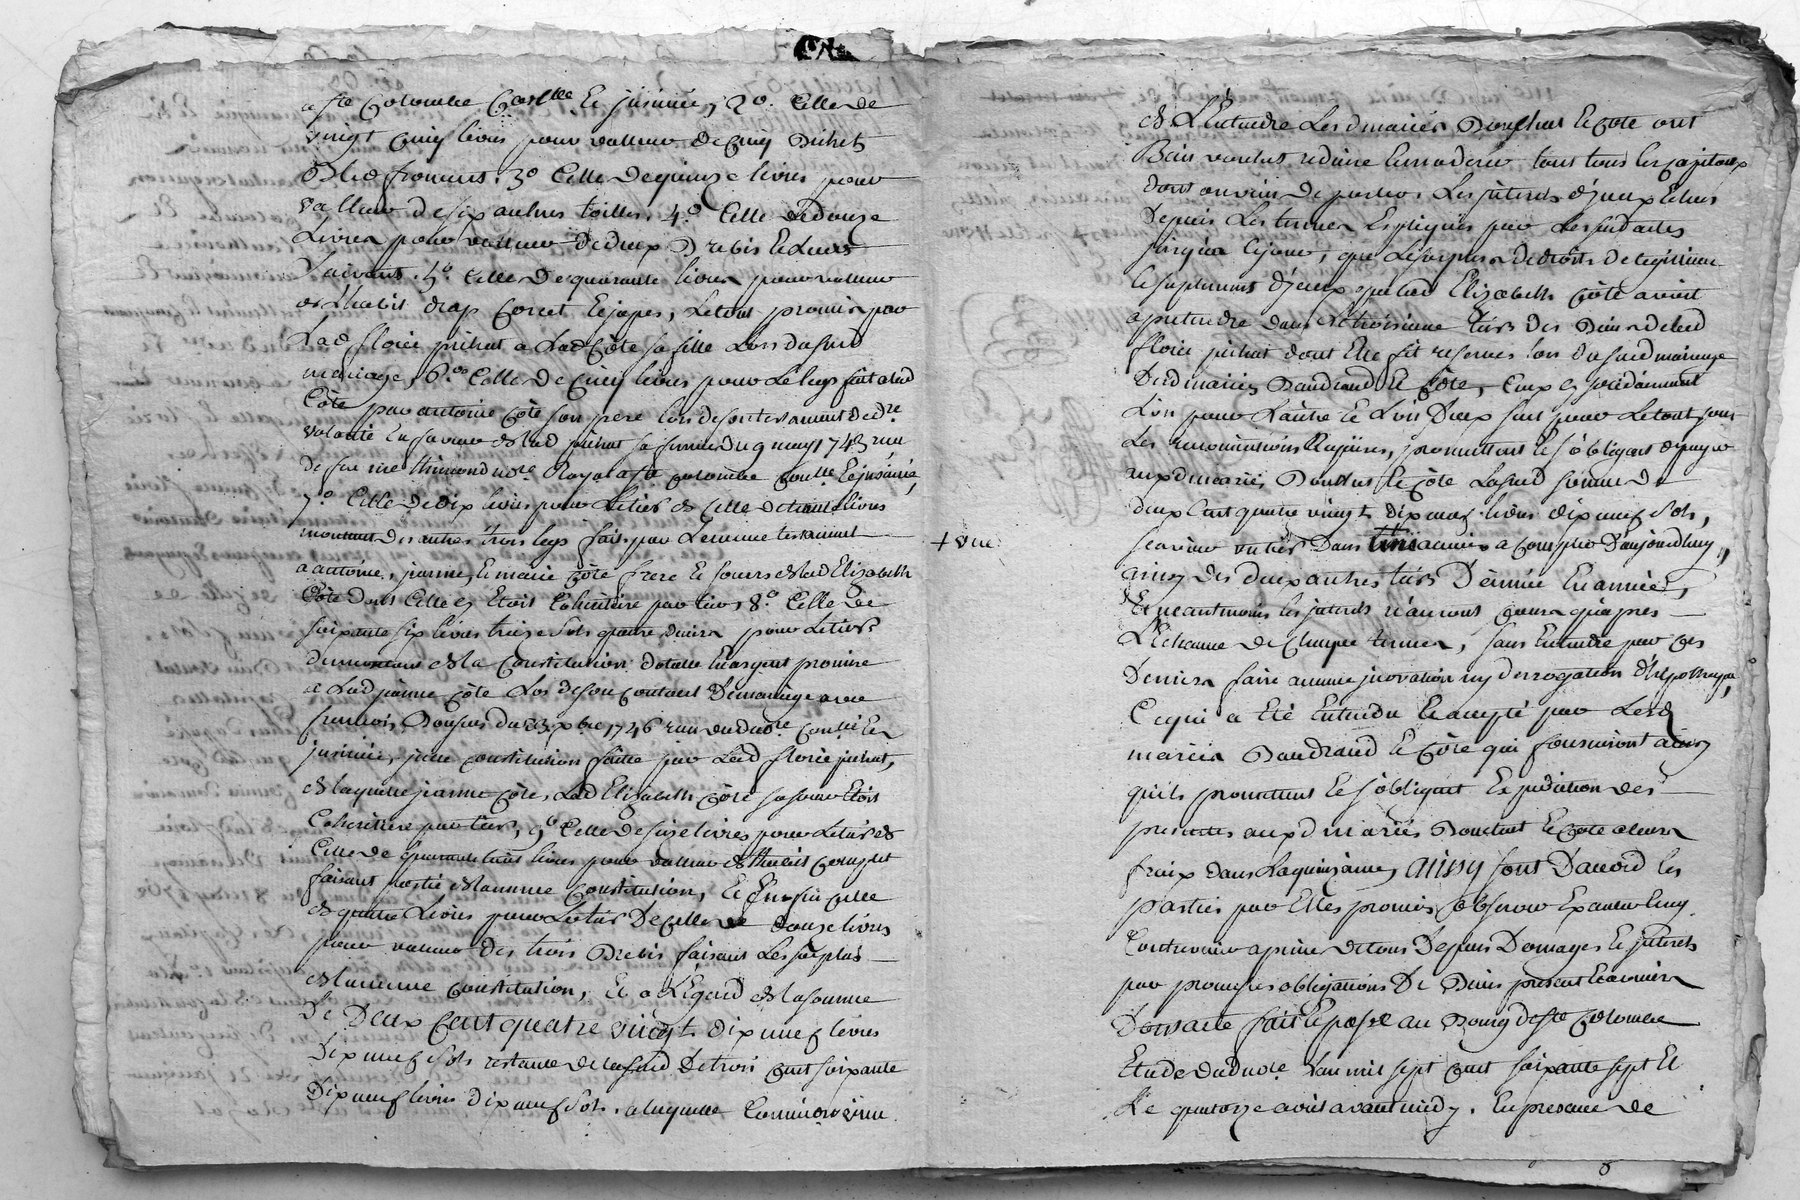 a Ste Colombe Con.lle et jnsinué, 2o. Celle de
vingt cinq livres pour valleur de cinq bichets
bled froment. 3o Celle de quinze livres pour
valleur de six autres toilles. 4o. Celle de douze
livres pour valleur de deux brebis et leurs
suivant. 5o. Celle de quarante livres pour valleur
d'habit drap corcet et jupes, le tout promis par
Lad. florie pichat a Lad. Côte sa fille Lors dusud.
mariage, 6o. Celle de cinq livres pour le legs fait a lad.
Côte par antoine Côte son pere lors de son testament de dre.
volonté en faveur de lad. pichat sa femme du 9 may 1743 reçu
de feu me Thimond nore. Royal a Ste Colombe conlle. et jnsinué,
7o. Celle de dix livres pour le tier de celle de trente livres
montant des autres trois legs fait par le meme testament
a antoine, jeanne, et marie Côte frere et soeurs de lad. Elizabeth
Côte dont elle étoit Cohéritiere par tier, 8o. Celle de
soixante six livres treize sols quatre deniers pour le tier
du montant de la constitution dotalle en argent promise
a Lad. jeanne Côte Lors de son contract de mariage avec
françois du 23 xbre 1746 reçu dud. nore. con.lé et
jnsinué, jcelle constitution faitte par Lad. florie pichat,
de laquelle jeanne Côte, Lad. Elizabeth Côte sa soeur étoit
Cohéritiere par tier, 9o Celle de seize livres pour le tier de
celle de quarante huit livres pour valleur d'habit complet
faisant partie de la meme constitution, et Enfin celle
de quatre livres pour le tier de celle de douze livres
pour valleur des trois brebis faisant le surplus
de la meme constitution, Et a L'Egard de la somme
De Deux Cent quatre vingt dix neuf livres
dix neuf sols restante de la sud. de trois cent soixante
dix neuf livres dix neuf sols, a laquelle
+ vue
de L'Entendre Lesd. mariés et Côte ont
bien voulus reduire et moderer tous les capitaux
dont on vient de parler, Les jnterets d'jceux Echus
depuis Les termes Expliqués par les susd. actes
jusqu'a ce jour, que le surplus de droits de legitime
et suplement d'jceux que lad. Elizabeth Côte avoit
a pretendre dans le troisieme tier des biens de lad.
florie pichat dont Elle fit reserves lors du susd. mariage
Lesd. mariés Dandrand et Côte, Eux solidairement
L'un pour L'autre et L'un d'eux seul pour le tout sous
Les renonciations Requises, promettent et s'obligent de payer
auxd. mariés et Côte Lasud. somme de
deux Cent quatre vingt dix neuf livres dix neuf sols,
sçavoir un tier dans une année a compter d'aujourd'huy,
ainsy des deux autres tiers d'année En année,
Et neantmoins les jnterets n'auront cours qu'après
L'Echeance de chaque terme, sans Entendre par ces
derniers faire aucune jnovation ny derrogation d'hypotheque,
Ce qui a Eté Entendu et accepté par Lesd.
mariés Dandrand et Côte qui fourniront ainsy
qu'ils promettent et s'obligent Expedition des
presentes auxd. mariés et Côte a leurs
fraix dans la quinzaine, Ainsy sont d'accord les
parties par Elles promis observer Exécuter
Contrevenir a peine de tous depens Domages et jnterets
par promesses obligations de biens present et avenir
Dont acte fait et passé au bourg de Ste Colombe
Etude dud. nore. L'an mil sept cent soixante sept Et
Le quatorze avril avant midy. En presence de